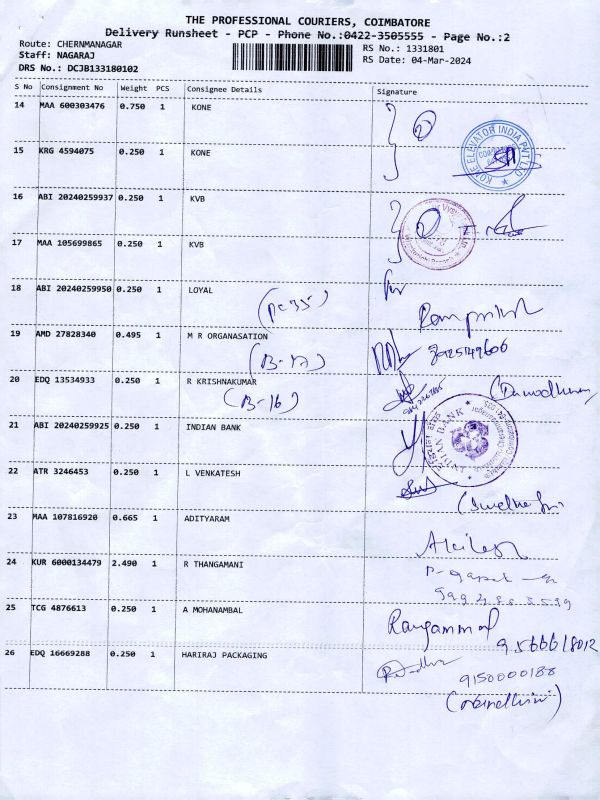 THE PROFESSIONAL COURIERS, COIMBATORE
Delivery Runsheet - PCP - Phone No.:0422-3505555 - Page No.:2
Route: CHERNMANAGAR
RS No.: 1331801
Staff: NAGARAJ
RS Date: 04-Mar-2024
DRS No.: DCJB133180102
S No Consignment No Weight PCS Consignee Details Signature
14 MAA 600303476 0.750 1 KONE
KONE ELEVATOR INDIA PVT LTD
15 KRG 4594075 0.250 1 KONE
16 ABI 20240259937 0.250 1 KVB
17 MAA 105699865 0.250 1 KVB
18 ABI 20240259950 0.250 1 LOYAL
19 AMD 27828340 0.495 1 M R ORGANASATION
(B-17)
20 EDQ 13534933 0.250 1 R KRISHNAKUMAR
(B-16)
21 ABI 20240259925 0.250 1 INDIAN BANK
INDIAN BANK
22 ATR 3246453 0.250 1 L VENKATESH
23 MAA 107816920 0.665 1 ADITYARAM
24 KUR 6000134479 2.490 1 R THANGAMANI
25 TCG 4876613 0.250 1 A MOHANAMBAL
Rangammal
9566618012
26 EDQ 16669288 0.250 1 HARIRAJ PACKAGING
9150000188